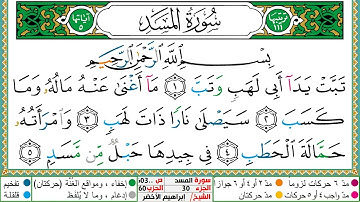 ترتيبها ١١١
سُورَةُ المَسَدِ
آياتها ٥
بِسْمِ اللَّهِ الرَّحْمَٰنِ الرَّحِيمِ
تَبَّتْ يَدَآ أَبِى لَهَبٍ وَتَبَّ ١ مَآ أَغْنَىٰ عَنْهُ مَالُهُۥ وَمَا
كَسَبَ ٢ سَيَصْلَىٰ نَارًا ذَاتَ لَهَبٍ ٣ وَٱمْرَأَتُهُۥ
حَمَّالَةَ ٱلْحَطَبِ ٤ فِى جِيدِهَا حَبْلٌ مِّن مَّسَدٍۭ ٥
مدّ ٦ حركات لزوما مدّ ٢ أو ٤ أو ٦ جوازا
مدّ واجب ٤ أو ٥ حركات مدّ حركتان
سورة المسد
الجزء 30 الحزب 60
الشيخ/ إبراهيم الأخضر
إخفاء، ومواقع الغنّة (حركتان) تفخيم
إدغام، وما لا يُلفظ قلقلة